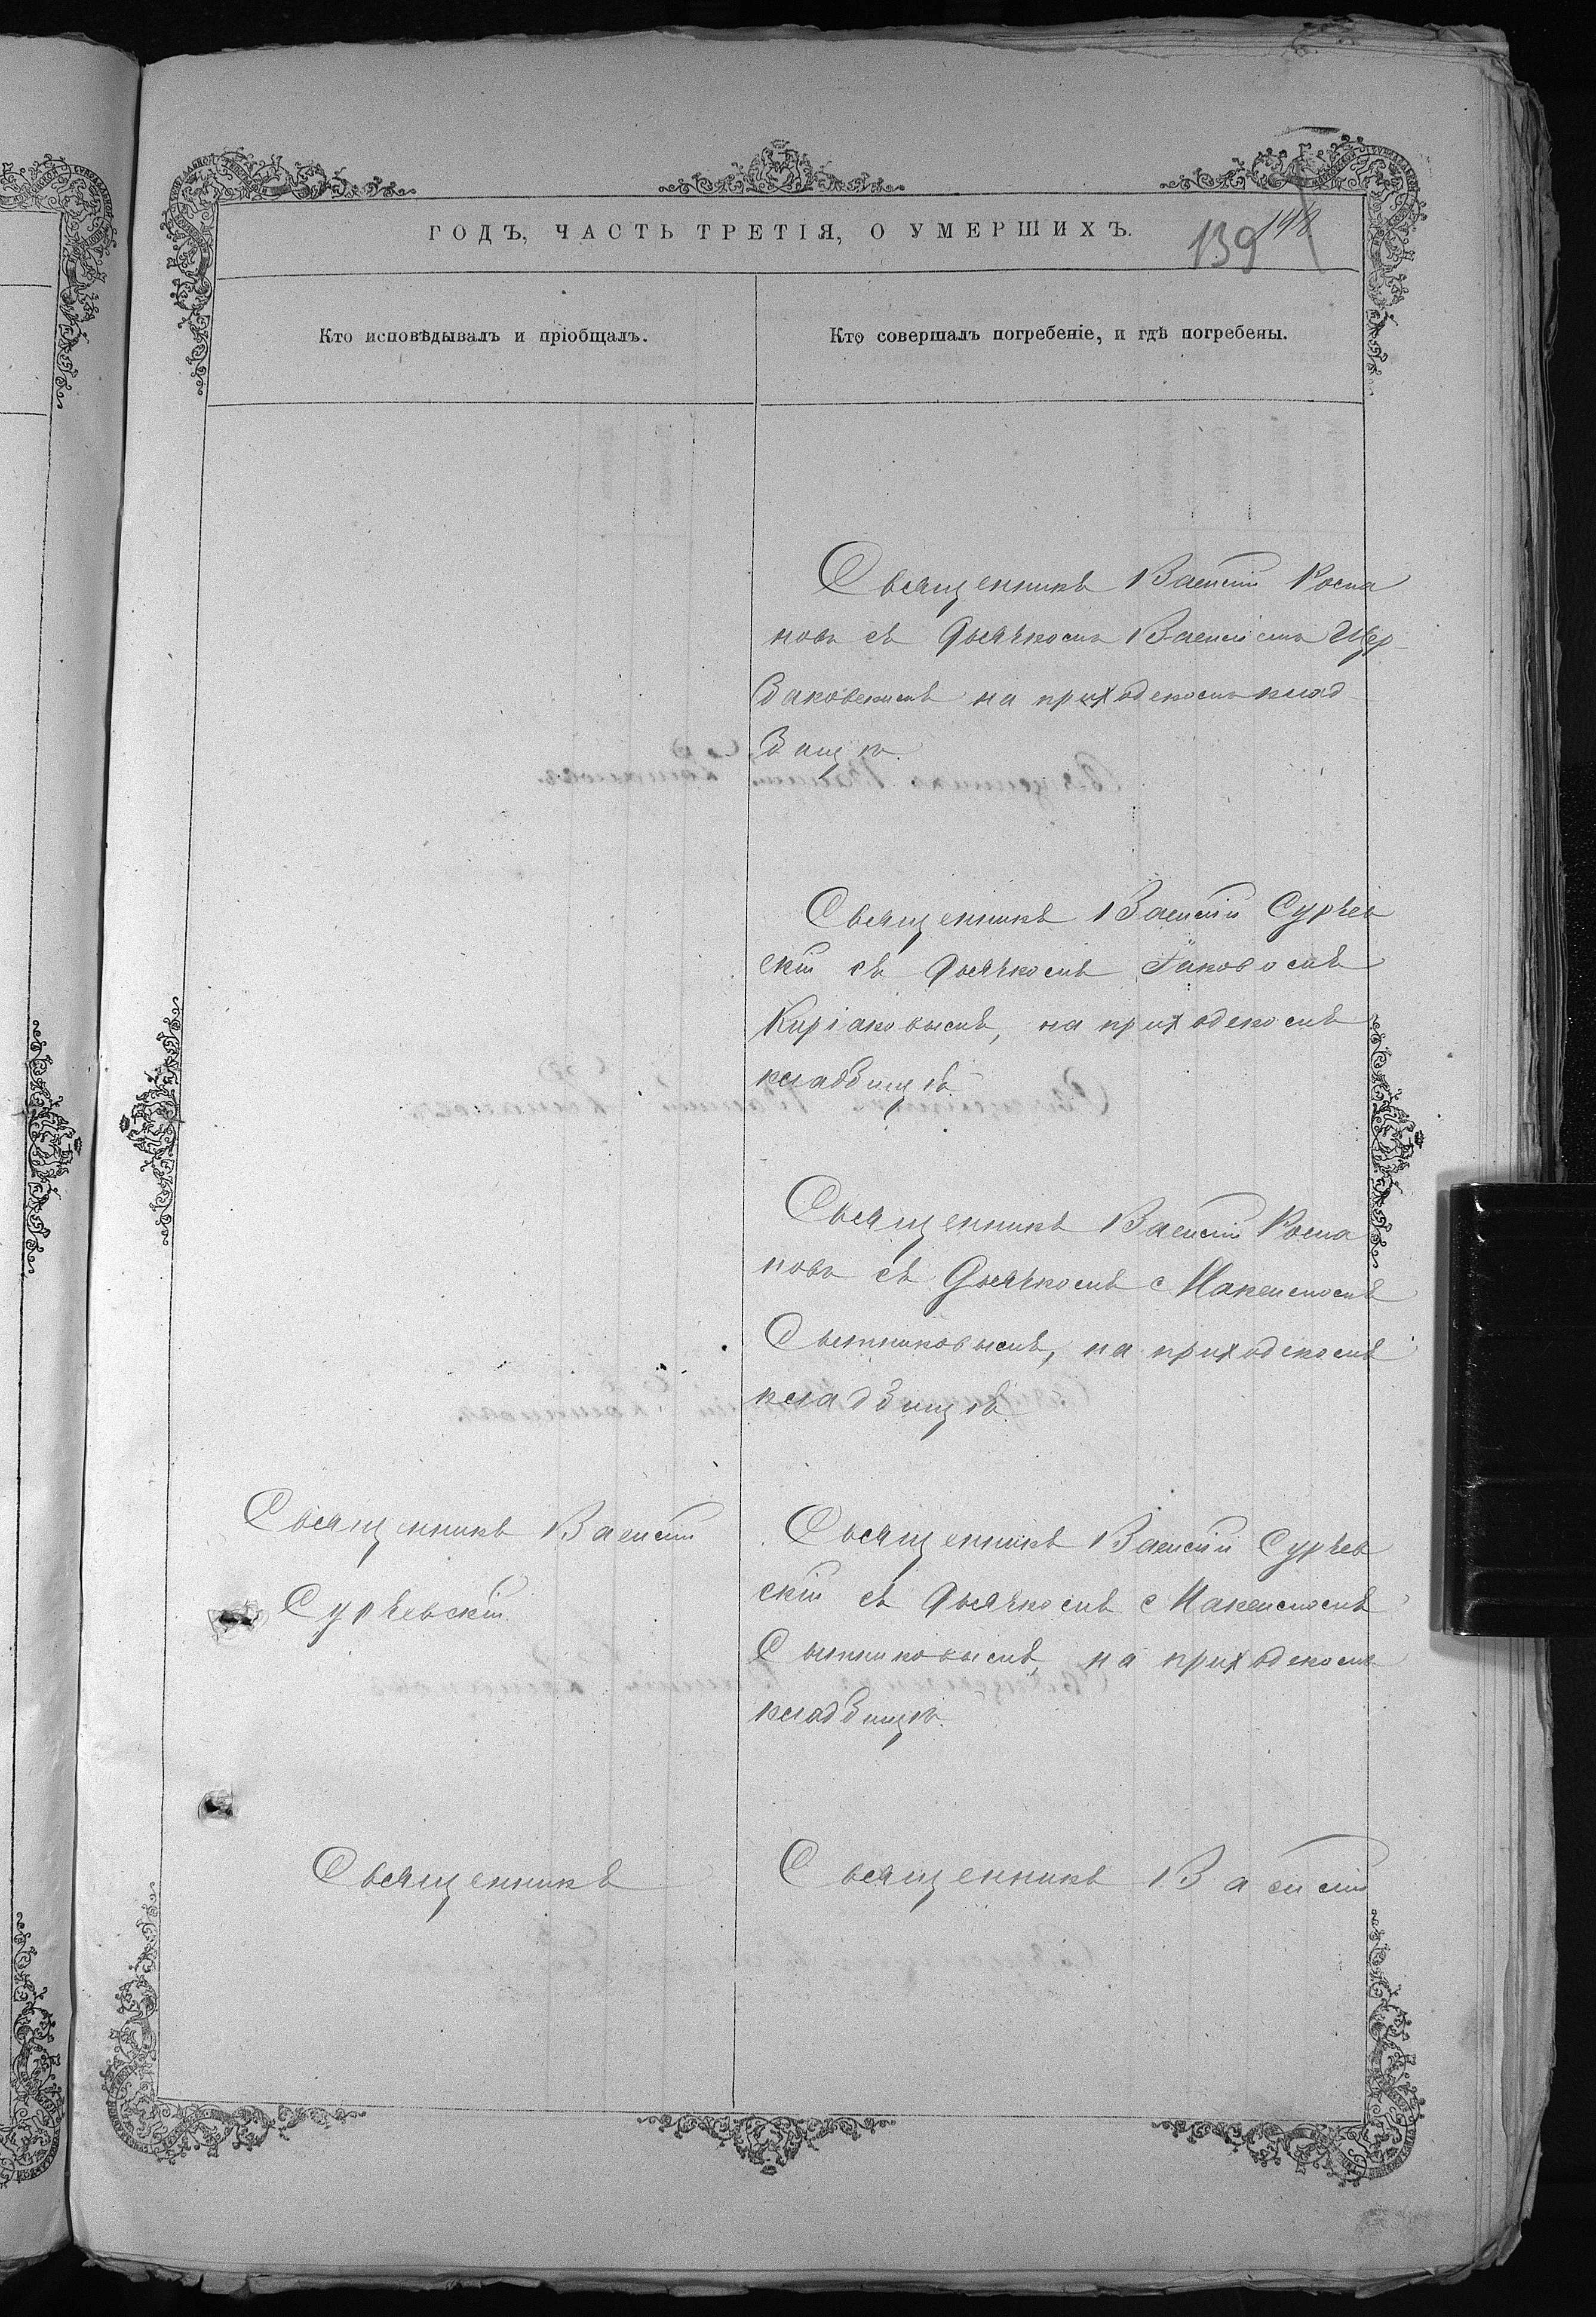 ГОДЪ, ЧАСТЬ ТРЕТІЯ, О УМЕРШИХЪ.
139 148
Кто исповѣдывалъ и пріобщалъ.
Кто совершалъ погребеніе, и гдѣ погребены.
Священникъ Василій Рома
новъ съ Дьячкомъ Василіемъ Щер
баковскимъ на приходскомъ клад
бищѣ.
Священникъ Василій Сурьев
скій съ Дьячкомъ Іаковомъ
Киріаковымъ, на приходскомъ
кладбищѣ.
Священникъ Василій Рома
новъ съ Дьячкомъ Максимомъ
Сытниковымъ, на приходскомъ
кладбищѣ.
Священникъ Василій
Сурьевскій.
Священникъ Василій Сурьев
скій съ Дьячкомъ Максимомъ
Сытниковымъ, на приходскомъ
кладбищѣ.
Священникъ
Священникъ Василій